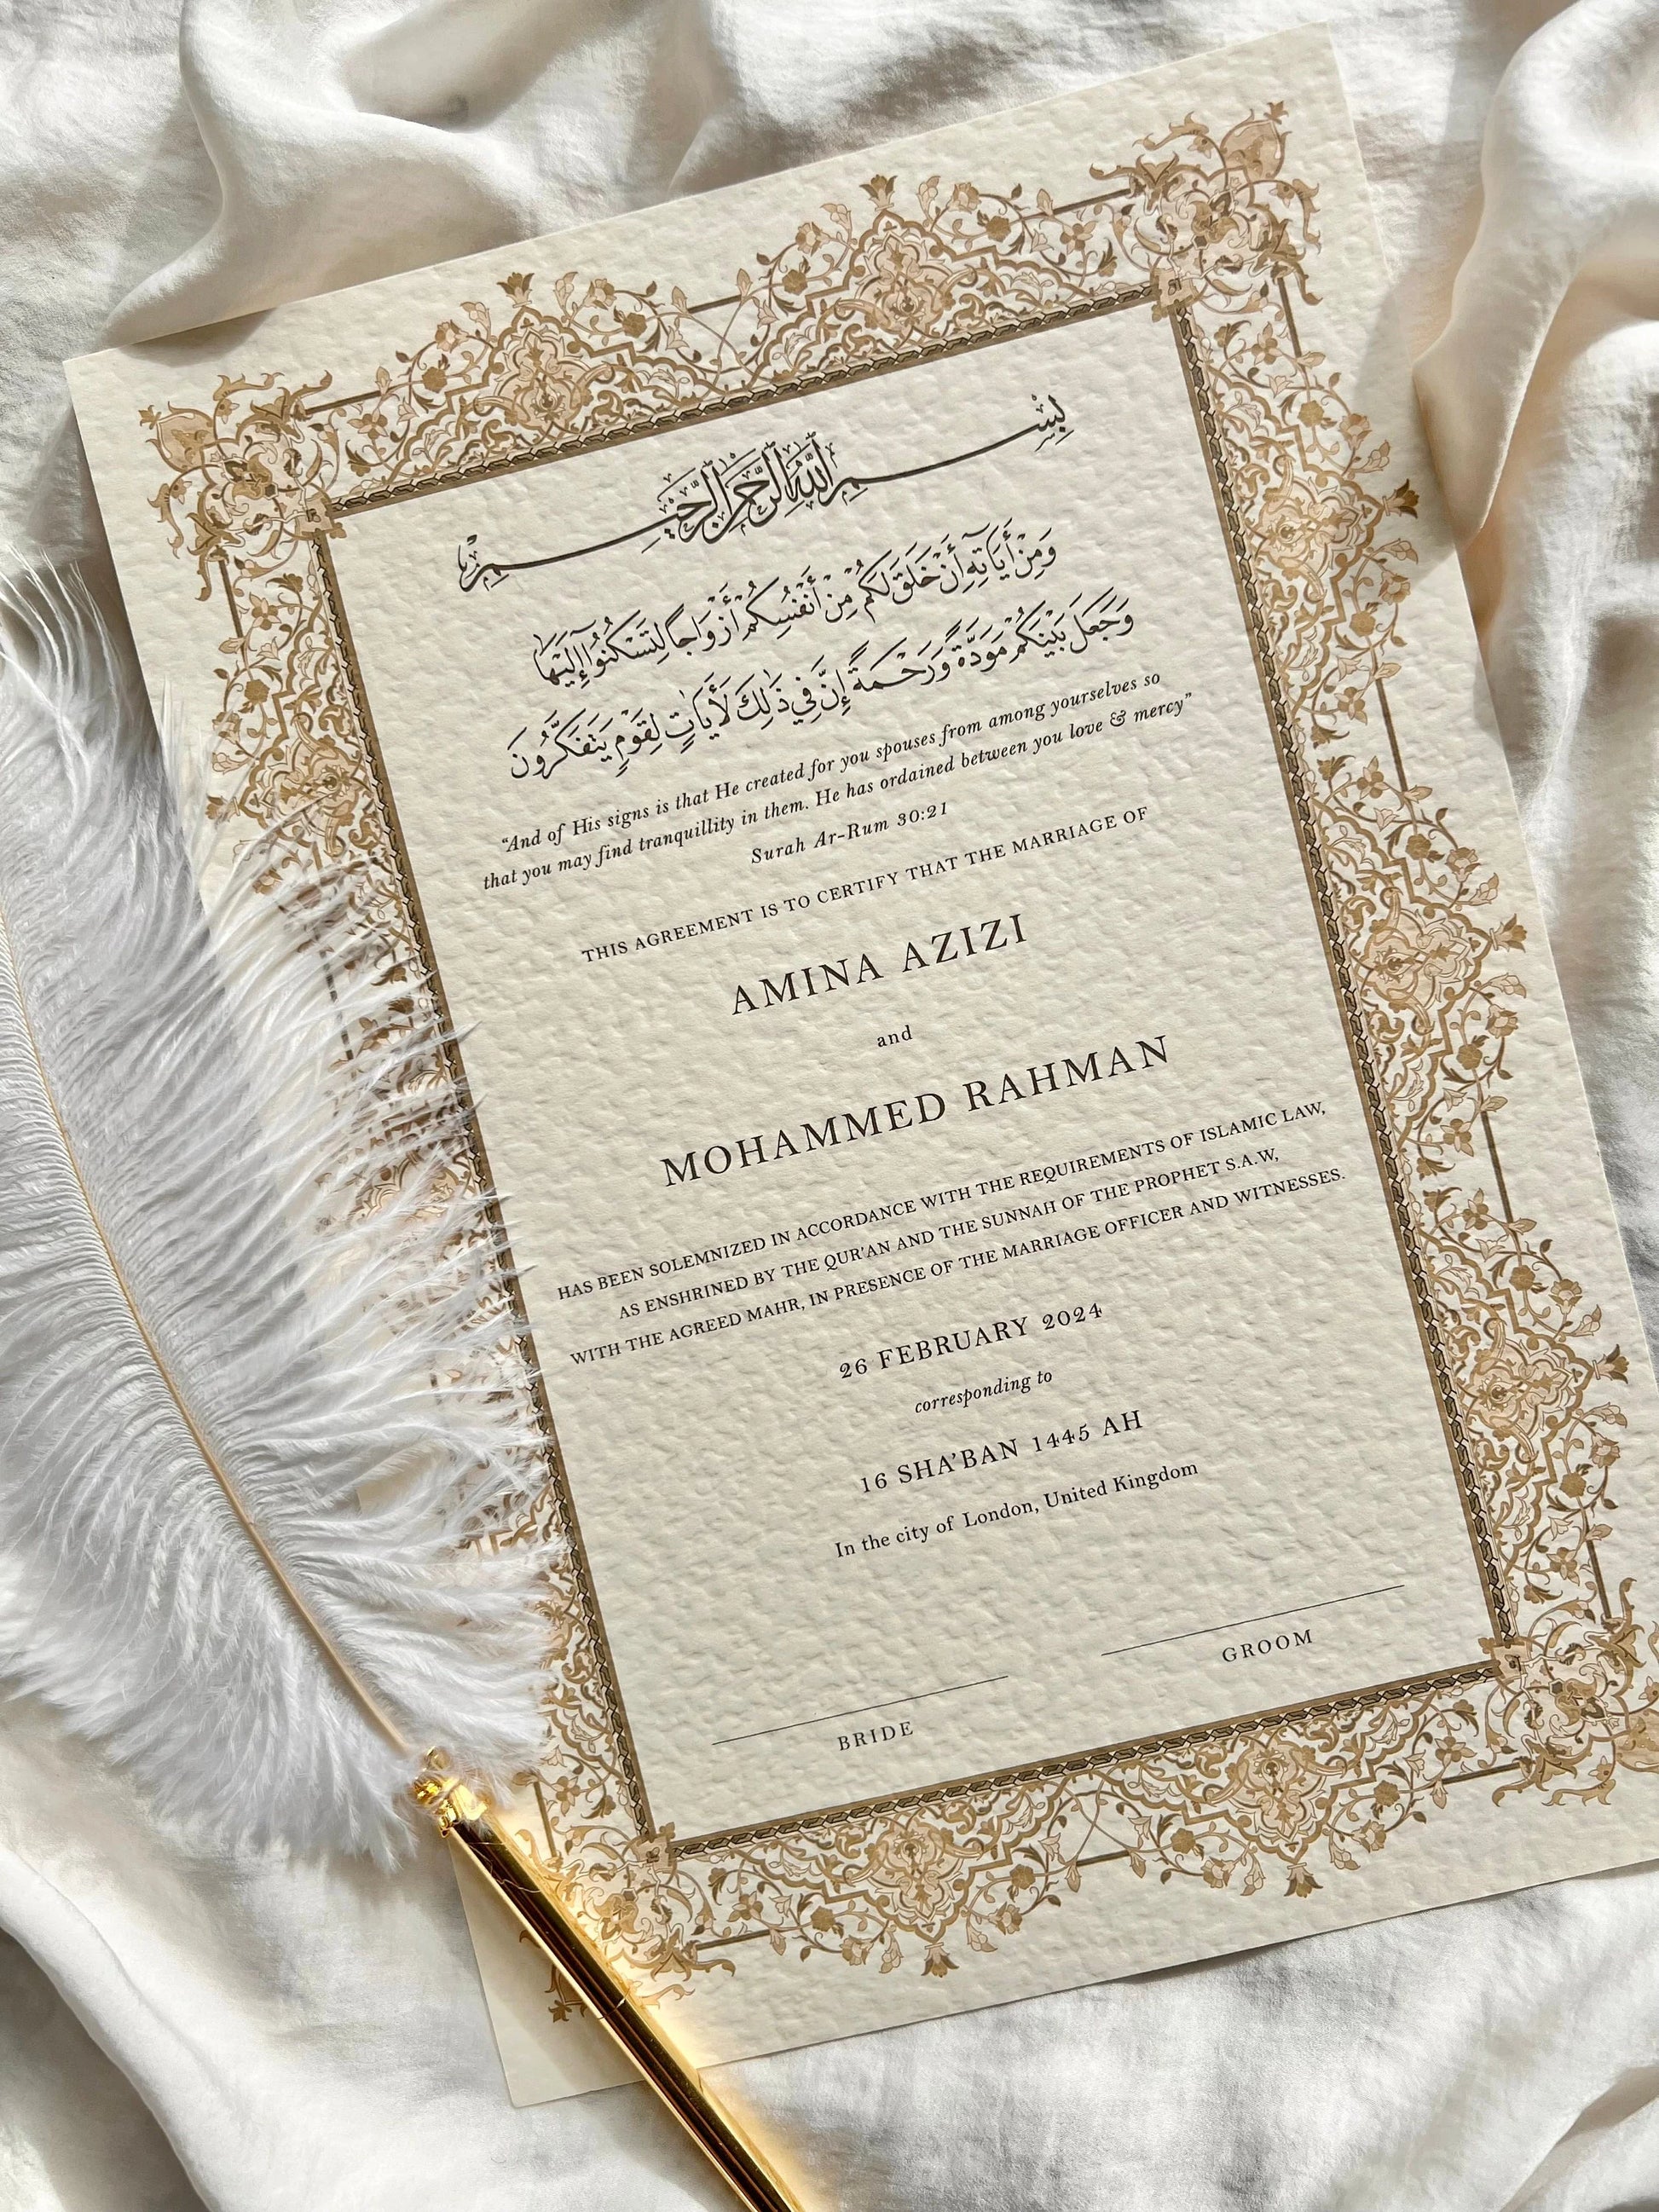 بِسْمِ اللَّهِ الرَّحْمَٰنِ الرَّحِيمِ
وَمِنْ أَيَاتِهِ أَنْ خَلَقَ لَكُم مِنْ أَنْفُسِكُمْ أَزْوَاجًا لِتَسْكُنُوا إِلَيْهَا
وَجَعَلَ بَيْنَكُم مَوَدَّةً وَرَحْمَةً إِنَّ فِي ذَٰلِكَ لَأَيَاتٍ لِقَوْمٍ يَتَفَكَّرُونَ
“And of His signs is that He created for you spouses from among yourselves so
that you may find tranquillity in them. He has ordained between you love & mercy”
Surah Ar-Rum 30:21
THIS AGREEMENT IS TO CERTIFY THAT THE MARRIAGE OF
AMINA AZIZI
and
MOHAMMED RAHMAN
HAS BEEN SOLEMNIZED IN ACCORDANCE WITH THE REQUIREMENTS OF ISLAMIC LAW,
AS ENSHRINED BY THE QUR'AN AND THE SUNNAH OF THE PROPHET S.A.W,
WITH THE AGREED MAHR, IN PRESENCE OF THE MARRIAGE OFFICER AND WITNESSES.
26 FEBRUARY 2024
corresponding to
16 SHA’BAN 1445 AH
In the city of London, United Kingdom
BRIDE
GROOM